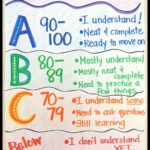 A 90-100
• I understand!
• Neat & complete
• Ready to move on
B 80-89
• Mostly understand
• Mostly neat & complete
• Need to practice a few things
C 70-79
• I understand some
• Need to ask questions
• Still learning
Below
• I don't understand
YET